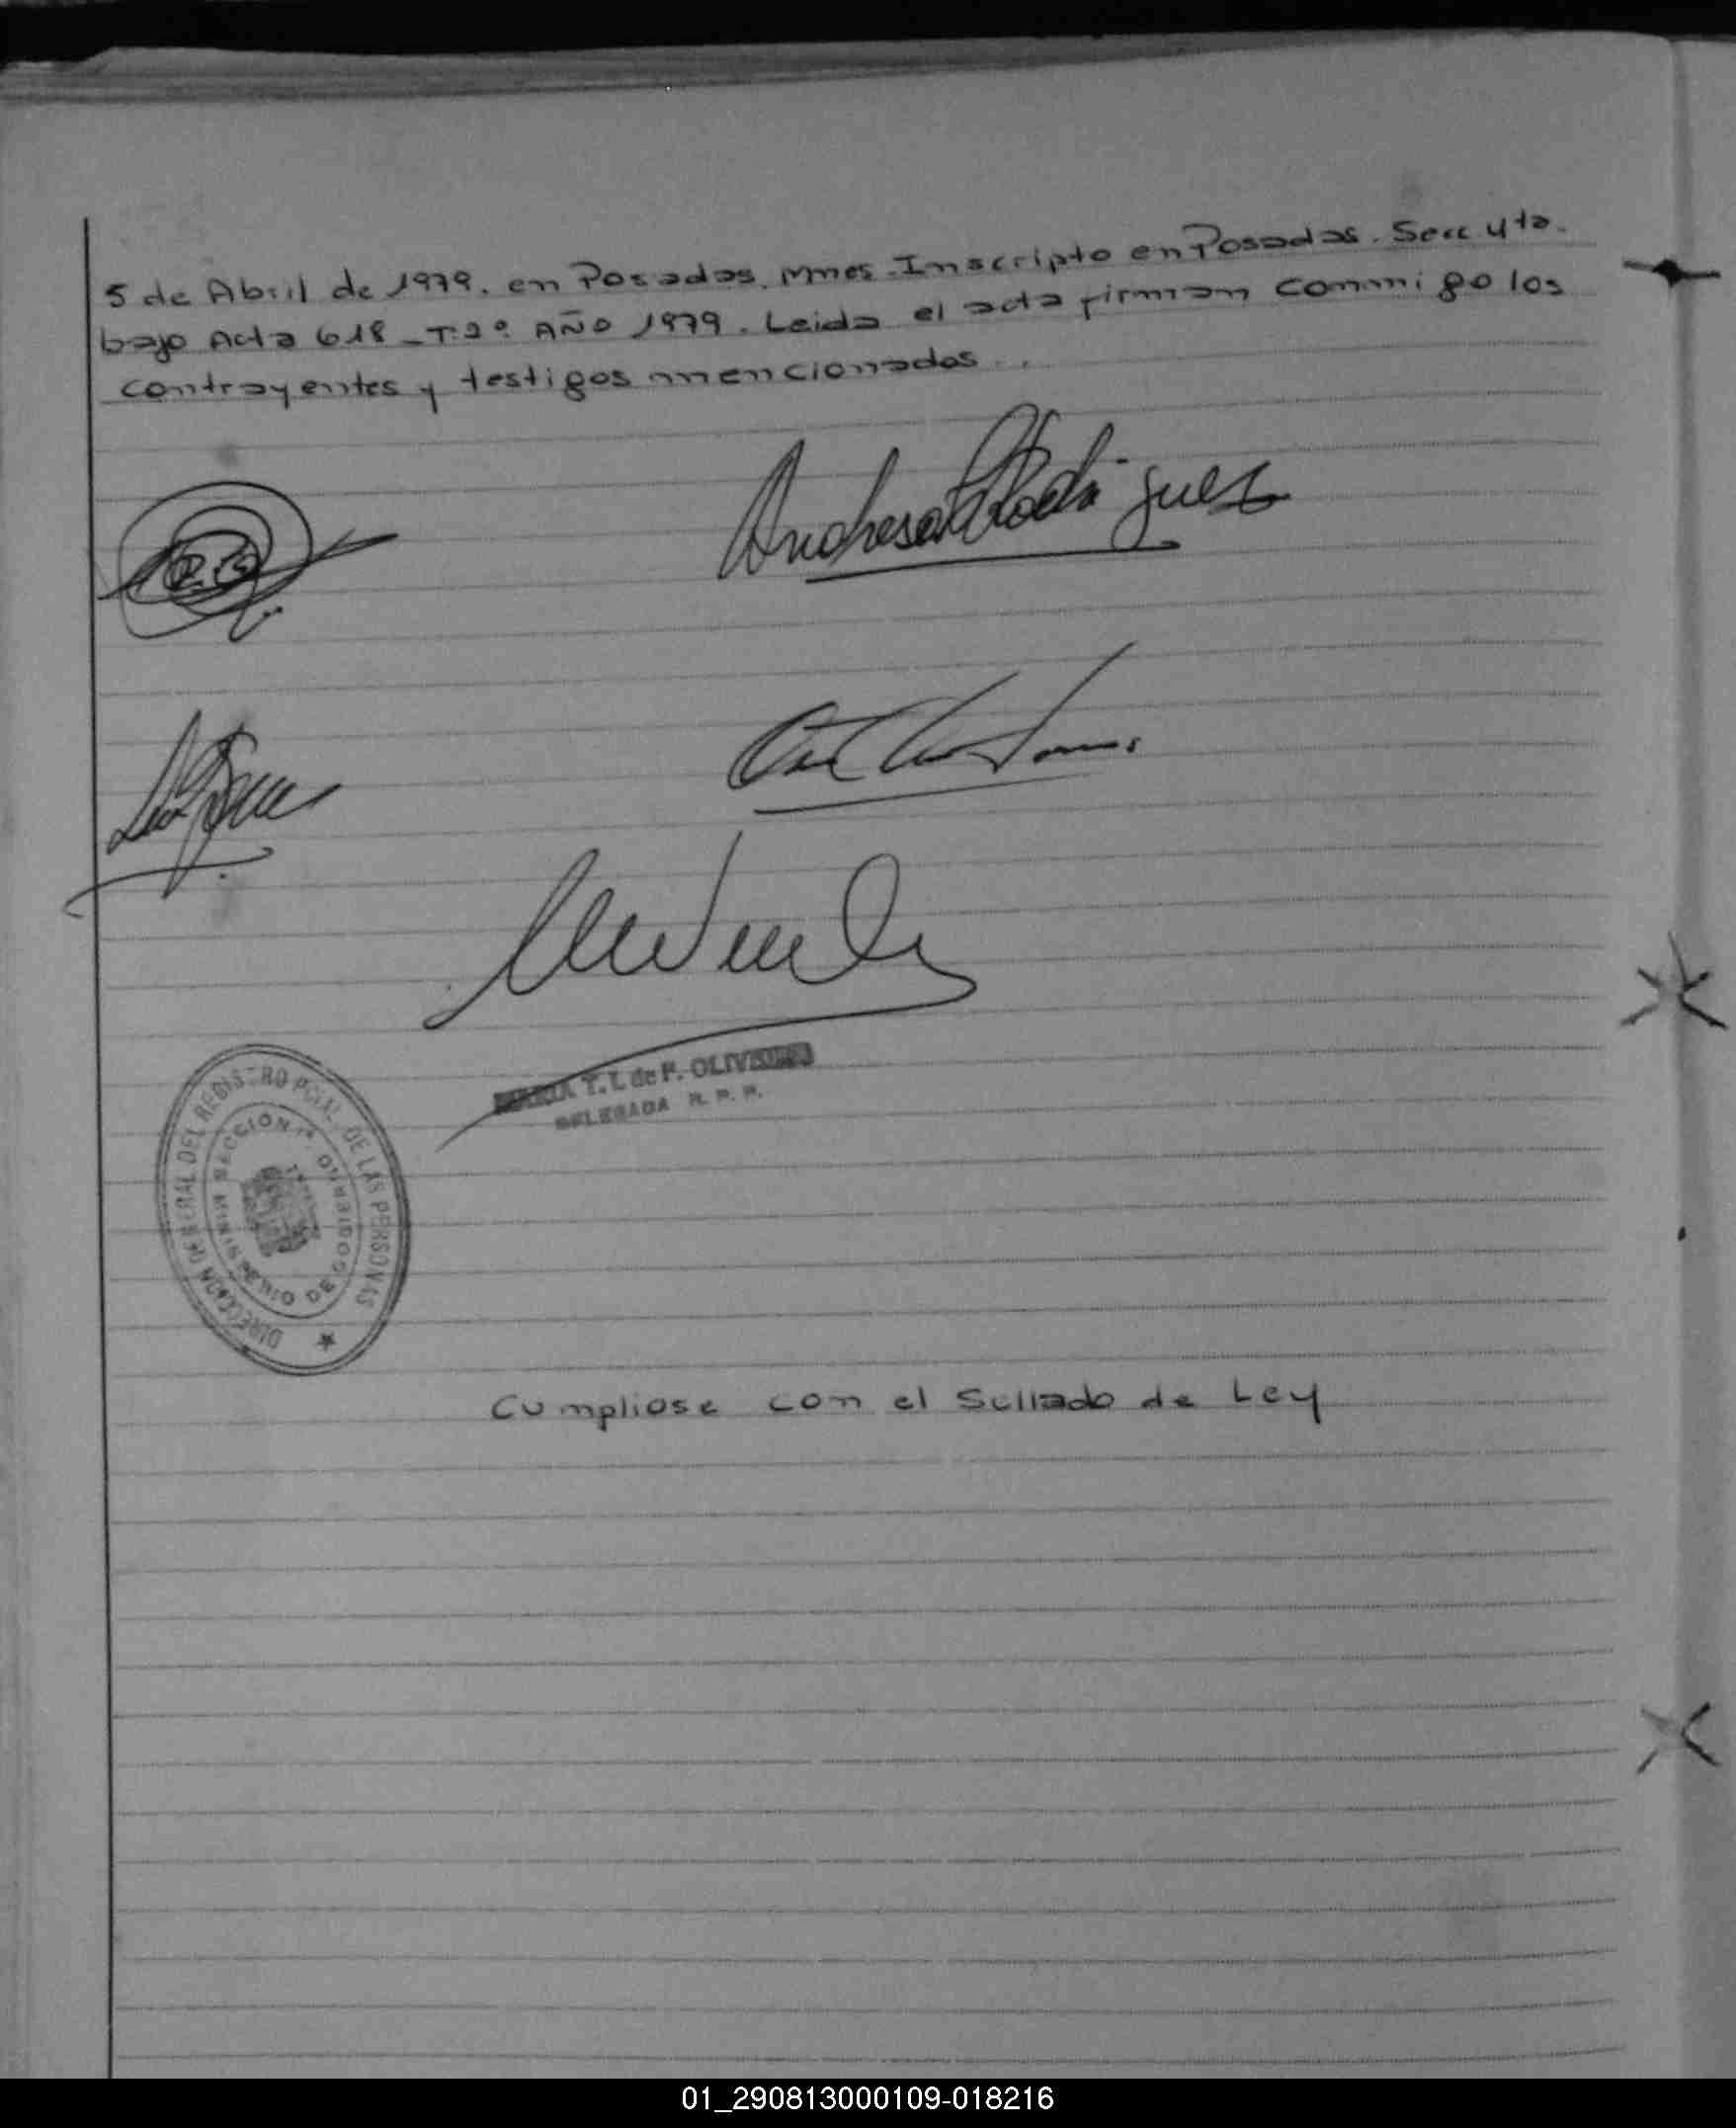 5 de Abril de 1979. en Posadas. Mnes. Inscripto en Posadas. Secc 4ta.
bajo Acta 618 - T: 2º AÑO 1979. Leida el acta firman conmigo los
contrayentes y testigos mencionados..
Andresa Rodriguez
MARIA T. I. de F. OLIVEIRA
DELEGADA R. P. P.
DIRECCION GENERAL DEL REGISTRO PCIAL. DE LAS PERSONAS
SECCION 1ª
MISIONES
Cumpliose con el Sellado de Ley
01_290813000109-018216